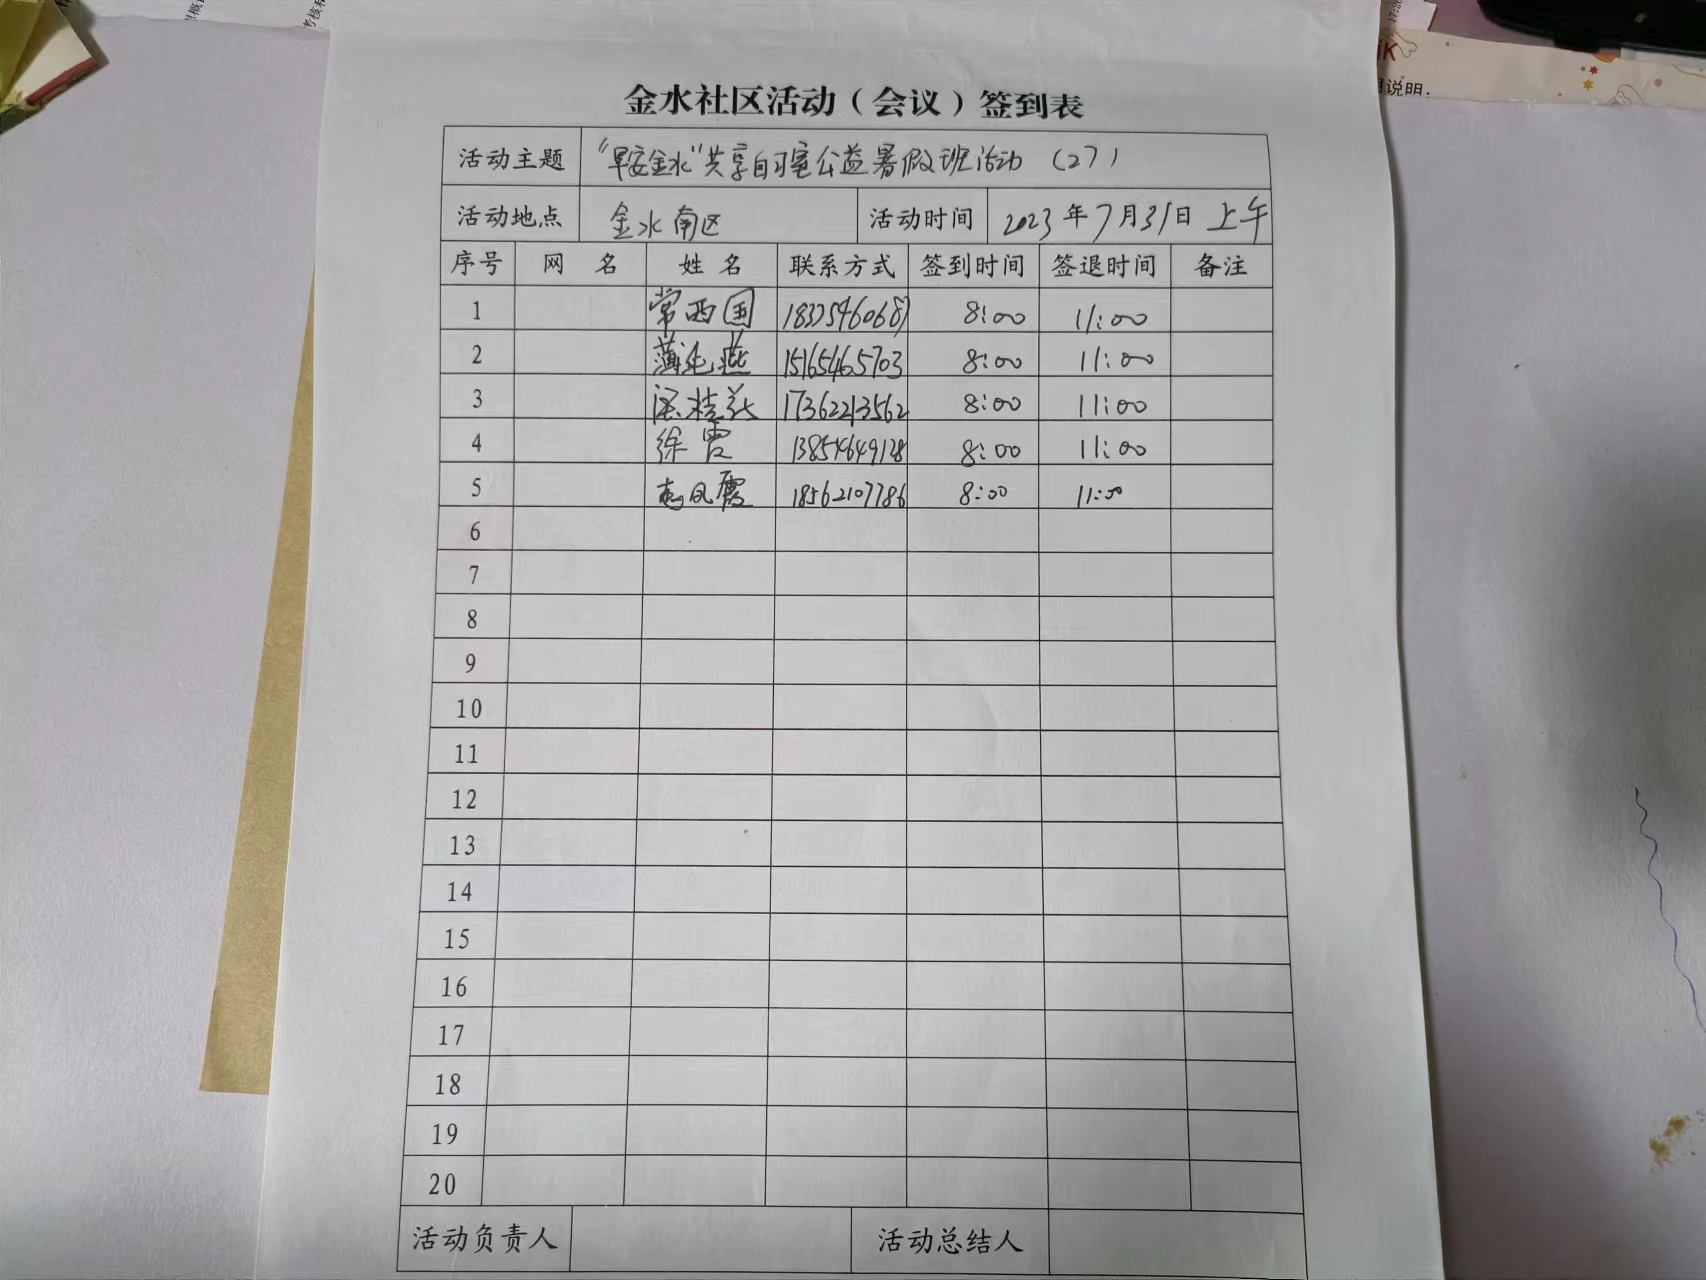 金水社区活动（会议）签到表
活动主题 "早安金水"共享自习室公益暑假班活动（27）
活动地点 金水南区 活动时间 2023年7月31日上午
序号 网 名 姓 名 联系方式 签到时间 签退时间 备注
1 常西国 18375460687 8:00 11:00
2 薄 燕 15165465703 8:00 11:00
3 桂花 17362213562 8:00 11:00
4 徐霞 13854649128 8:00 11:00
5 凤霞 18562107786 8:00 11:00
6
7
8
9
10
11
12
13
14
15
16
17
18
19
20
活动负责人 活动总结人
说明.